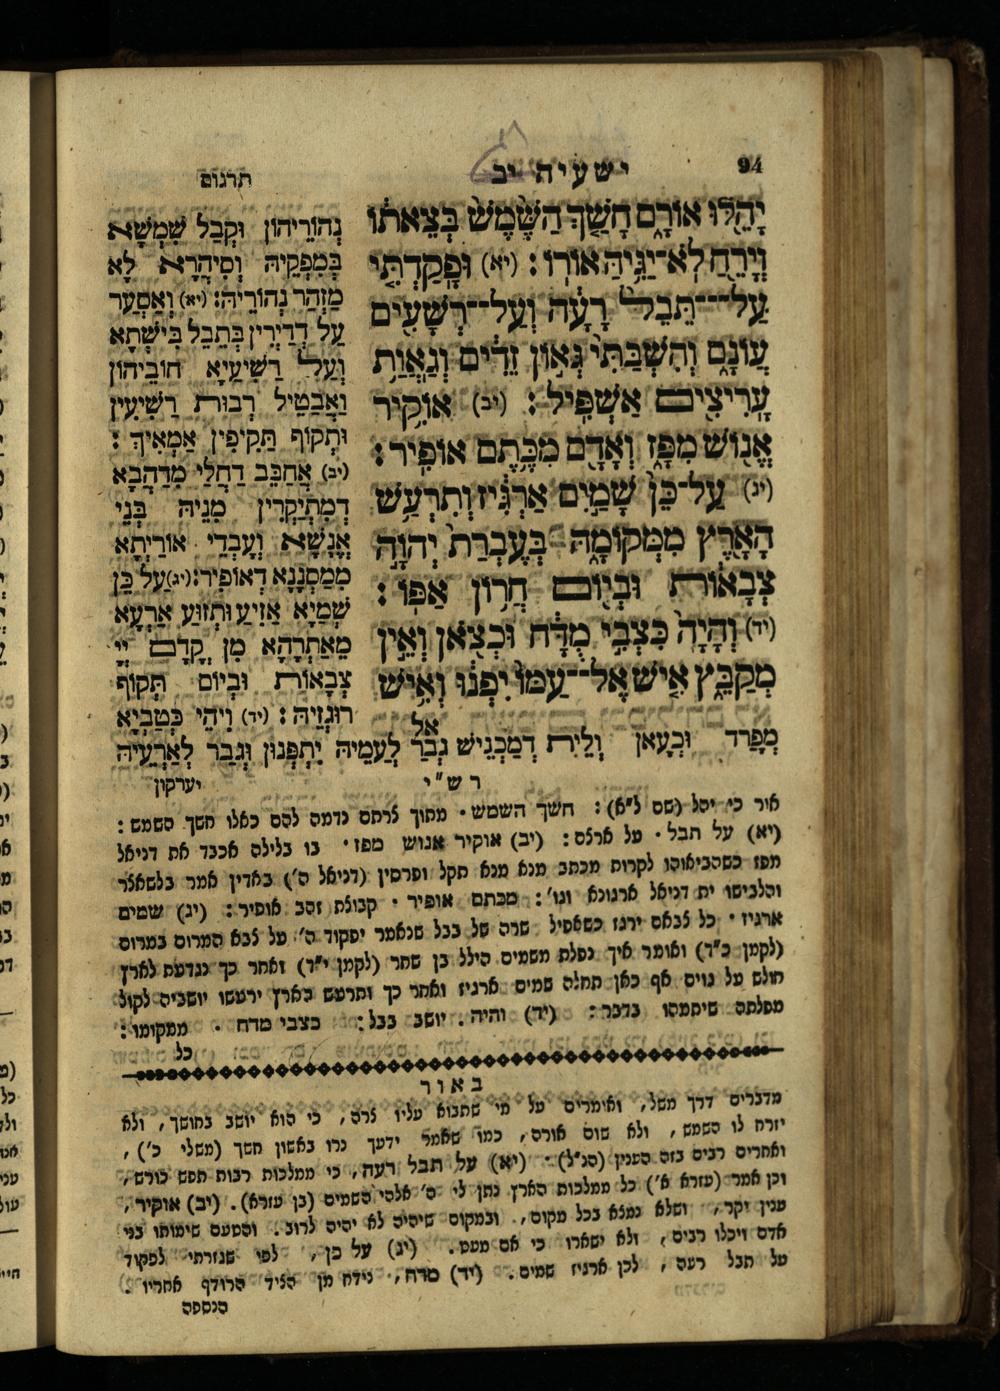 94
ישעיה יב
תרגום
יָהֵלּוּ אוֹרָם חָשַׁךְ הַשֶּׁמֶשׁ בְּצֵאתוֹ
וְיָרֵחַ לֹא־יַגִּיהַּ אוֹרוֹ : (יא) וּפָקַדְתִּי
עַל־־־תֵּבֵל רָעָה וְעַל־־רְשָׁעִים
עֲוֹנָם וְהִשְׁבַּתִּי גְּאוֹן זֵדִים וְגַאֲוַת
עָרִיצִים אַשְׁפִּיל : (יב) אוֹקִיר
אֱנוֹשׁ מִפָּז וְאָדָם מִכֶּתֶם אוֹפִיר :
(יג) עַל־כֵּן שָׁמַיִם אַרְגִּיז וְתִרְעַשׁ
הָאָרֶץ מִמְּקוֹמָהּ בְּעֶבְרַת יְהוָה
צְבָאוֹת וּבְיוֹם חֲרוֹן אַפּוֹ :
(יד) וְהָיָה כִּצְבִי מֻדָּח וּכְצֹאן וְאֵין
מְקַבֵּץ אִישׁ אֶל־־עַמּוֹ יִפְנוּ וְאִישׁ
אל
נְהוֹרֵיהוֹן וּקְבַל שִׁמְשָׁא
בְּמִפְּקֵיהּ וְסִיהֲרָא לָא
מַזְהַר נְהוֹרֵיהּ : (יא) וְאַסְעַר
עַל דְּדָיְרִין בְּתֵבֵל בִּישְׁתָא
וְעַל רַשִׁיעַיָא חוֹבֵיהוֹן
וַאֲבַטֵּיל רְבוּת רַשִׁיעִין
וּתְקוֹף תַּקִּיפִין אַמְאִיךְ :
(יב) אֲחַבֵּב דַּחֲלַי מִדַּהֲבָא
דְמִתְיַקְרִין מִנֵּיהּ בְּנֵי
אֲנָשָׁא וְעָבְדֵי אוֹרַיְתָא
מִמַסְנָנָא דְאוֹפִיר : (יג) עַל כֵּן
שְׁמַיָא אֲזִיעַ וּתְזוּעַ אַרְעָא
מֵאַתְרָהָא מִן קֳדָם יְיָ
צְבָאוֹת וּבְיוֹם תְּקוֹף
רוּגְזֵיהּ : (יד) וִיהֵי כְּטַבְיָא
מְפָרַד וּכְעָאן וְלֵית דְּמַכְנֵישׁ גְּבַר לְעַמֵּיהּ יִתְפְּנוּן וּגְבַר לְאַרְעֵיהּ
יערקון
רש״י
אור כי יהל (שם ל״א) : חשך השמש · מתוך לרתם נדמה להם כאלו חשך השמש :
(יא) על תבל · על ארלס : (יב) אוקיר אנוש מפז · בו בלילה אכבד את דניאל
מפז כשהביאוהו לקרות מכתב מנא מנא תקל ופרסין (דניאל ה׳) באדין אמר בלשאצר
והלבישו ית דניאל ארגונא וגו׳ : מכתם אופיר · קבולת זהב אופיר : (יג) שמים
ארגיז · כל צבאם ירגז כשאפיל שרה של בבל שנאמר יפקוד ה׳ על צבא המרום במרום
(לקמן כ״ד) ואומר איך נפלת משמים הילל בן שחר (לקמן י״ד) ואחר כך נגדעת לארץ
חולש על גוים אף כאן תחלה שמים ארגיז ואחר כך ותרעש הארץ ירעשו יושביה לקול
מפלתה שיתמהו בדבר : (יד) והיה · יושב בבל : כצבי מדח · ממקומו :
כל
באור
מדברים דרך משל, ואומרים על מי שתבוא עליו צרה, כי הוא יושב בחושך, ולא
יזרח לו השמש, ולא שום אורה, כמו שאמר ידעך נרו באשון חשך (משלי כ׳),
ואחרים רבים בזה הענין (הנ״ל) · (יא) על תבל רעה, כי ממלכות רבות תפש כורש,
וכן אמר (עזרא א׳) כל ממלכות הארץ נתן לי ה׳ אלהי השמים (בן עזרא). (יב) אוקיר,
ענין יקר, ושלא נמצא בכל מקום, ובמקום שיהיה לא יהיה לרוב. והטעם שימותו בני
אדם ויכלו רבים, ולא ישארו כי אם מעט. (יג) על כן, לפי שגזרתי לפקוד
על תבל רעה, לכן ארגיז שמים. (יד) מדח, נידח מן הציד הרודף אחריו.
הנספה